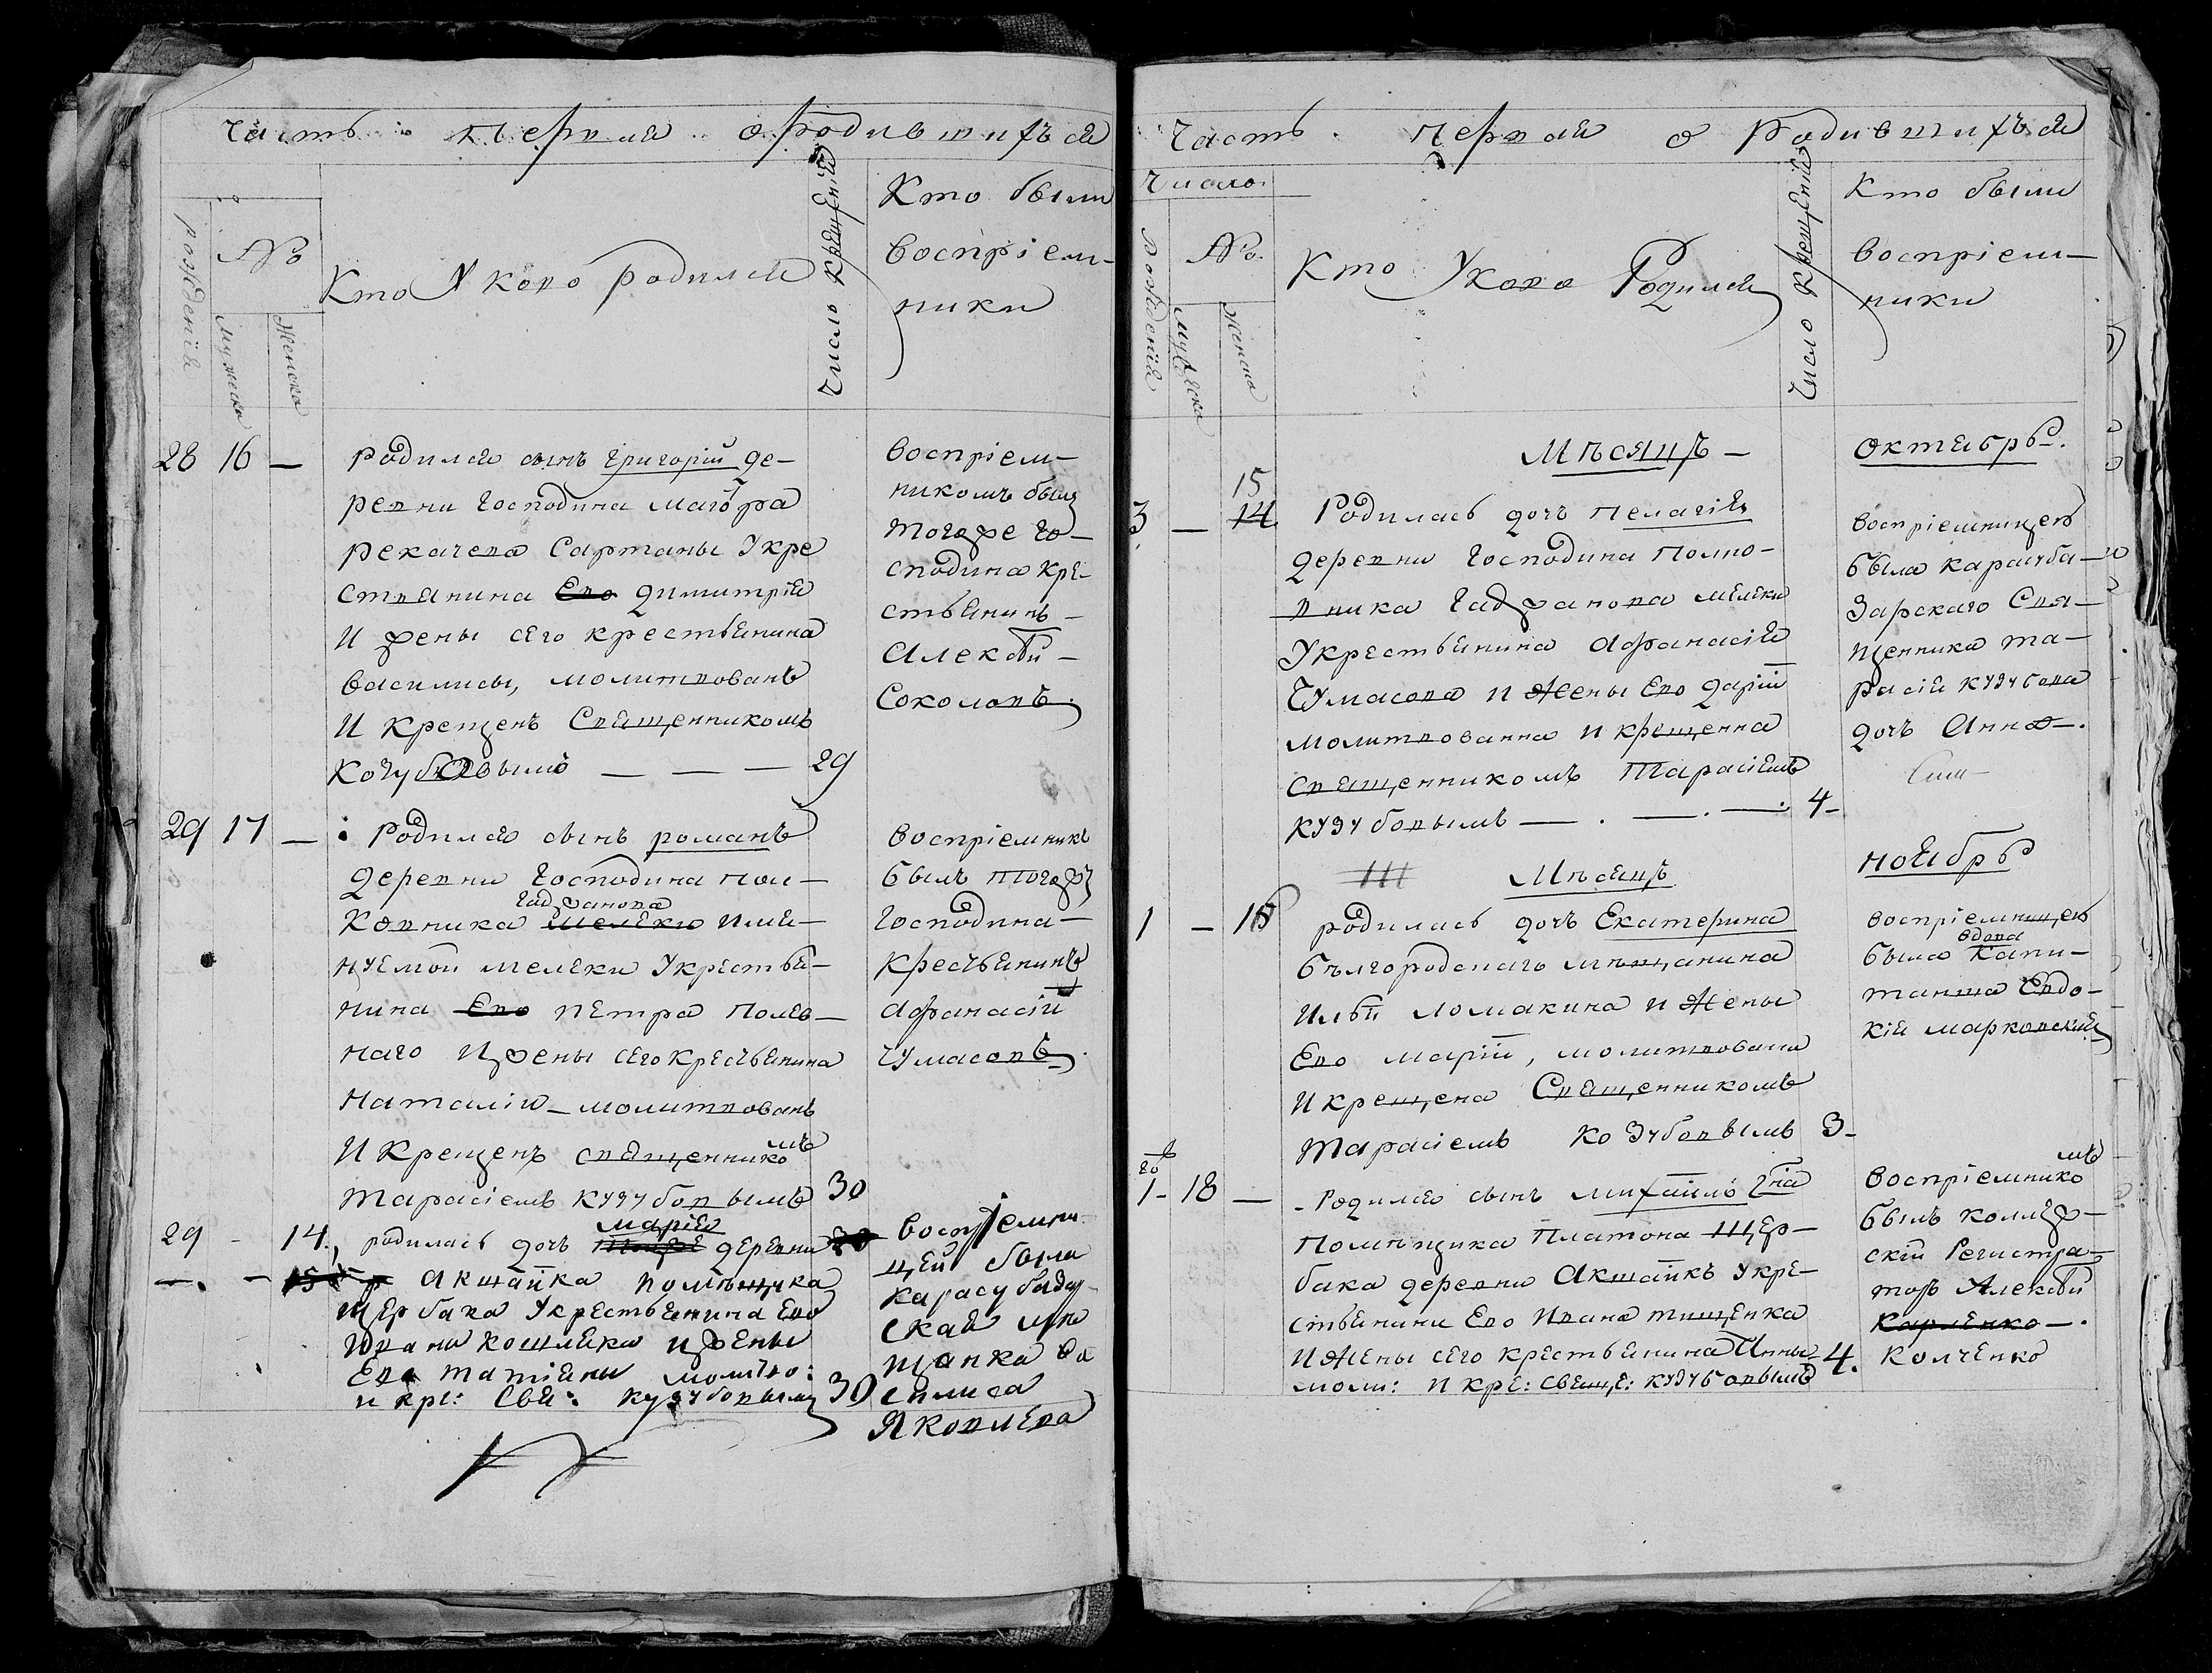 Часть первая о родившихся
Число рожденія
№
Мужеска
Женска
Кто У кого родился
Число крещенія
Кто были
воспріем-
ники
28 16 — Родился сынъ Григорій де-
ревни Господина маіора
Рекачева Сартаны У кре
стянина Его Димитрія
И жены сего крестьянина
Василисы, молитвованъ
И Крещенъ Священникомъ
29
воспріем-
никомъ былъ
тогоже го-
сподина кре-
стьянинъ
Алексѣй
Соколовъ
29 17 — Родился сынъ романъ
деревни Господина пол-
Гаджанова
Ковника мелеки име-
нуемой мелеки У крестья-
нина Его петра полев-
наго И жены сего крестьянина
Наталіи молитвованъ
И Крещенъ священникомъ
Тарасіемъ Кузубовымъ 30
воспріемникъ
былъ тогожъ
Господина
крестьянинъ
Афанасій
Чумасовъ
29 - 14. родилась дочь Марія деревни
15 Акшайка помѣщика
Щербака У крестьянина Его
Ивана Кошляка и жены
Его татіаны молитво:
и кре: Свя: Кузубовымъ 30
воспріемни
цей была
Карасубазар-
ская мѣ
щанка Ва
силиса
Яковлева
Часть первая о Родившихся
Число
Рожденія
№
Мужеска
Женска
Кто У кого Родился
Число крещенія
Кто были
воспріем-
ники
Мѣсяцъ — Октябрь.
3 — 15 14 Родилась дочь пелагія
деревни Господина полко-
вника Гаджанова мелеки
У крестьянина Афанасія
Чумасова и Жены Его Даріи
молитвованна и крещенна
Священникомъ Тарасіемъ
Кузубовымъ — . — . — 4-
воспріемницею
была карасуба-
зарскаго Свя-
щенника та-
расія Кузубова
дочь Анна.
Мѣсяцъ Ноябрь
1 — 16 родилась дочь Екатерина
бѣлгородскаго мѣщанина
Ильи Ломакина и Жены
Его маріи, молитвована
И крещена Священникомъ
Тарасіемъ Козубовымъ 3-
воспріемницею
вдова
была капи-
танша Евдо-
кія марковская
1- 18 — Родился сынъ михаилъ Гна
помѣщика Платона Щер-
бака деревни Акшайкъ У кре-
стьянина Его Ивана тищенка
И Жены сего крестьянина Анны
моли: и кре: свяще: кузубовымъ 4.
воспріемникомъ
былъ коллеж-
скій Регистра-
торъ Алексѣй
Карленко
Колченко